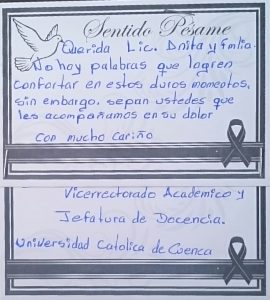 Sentido Pésame
Querida Lic. Anita y Emilia.
No hay palabras que logren
confortar en estos duros momentos,
sin embargo, sepan ustedes que
les acompañamos en su dolor
Con mucho cariño
Vicerrectorado Academico y
Jefatura de Docencia.
Universidad Catolica de Cuenca